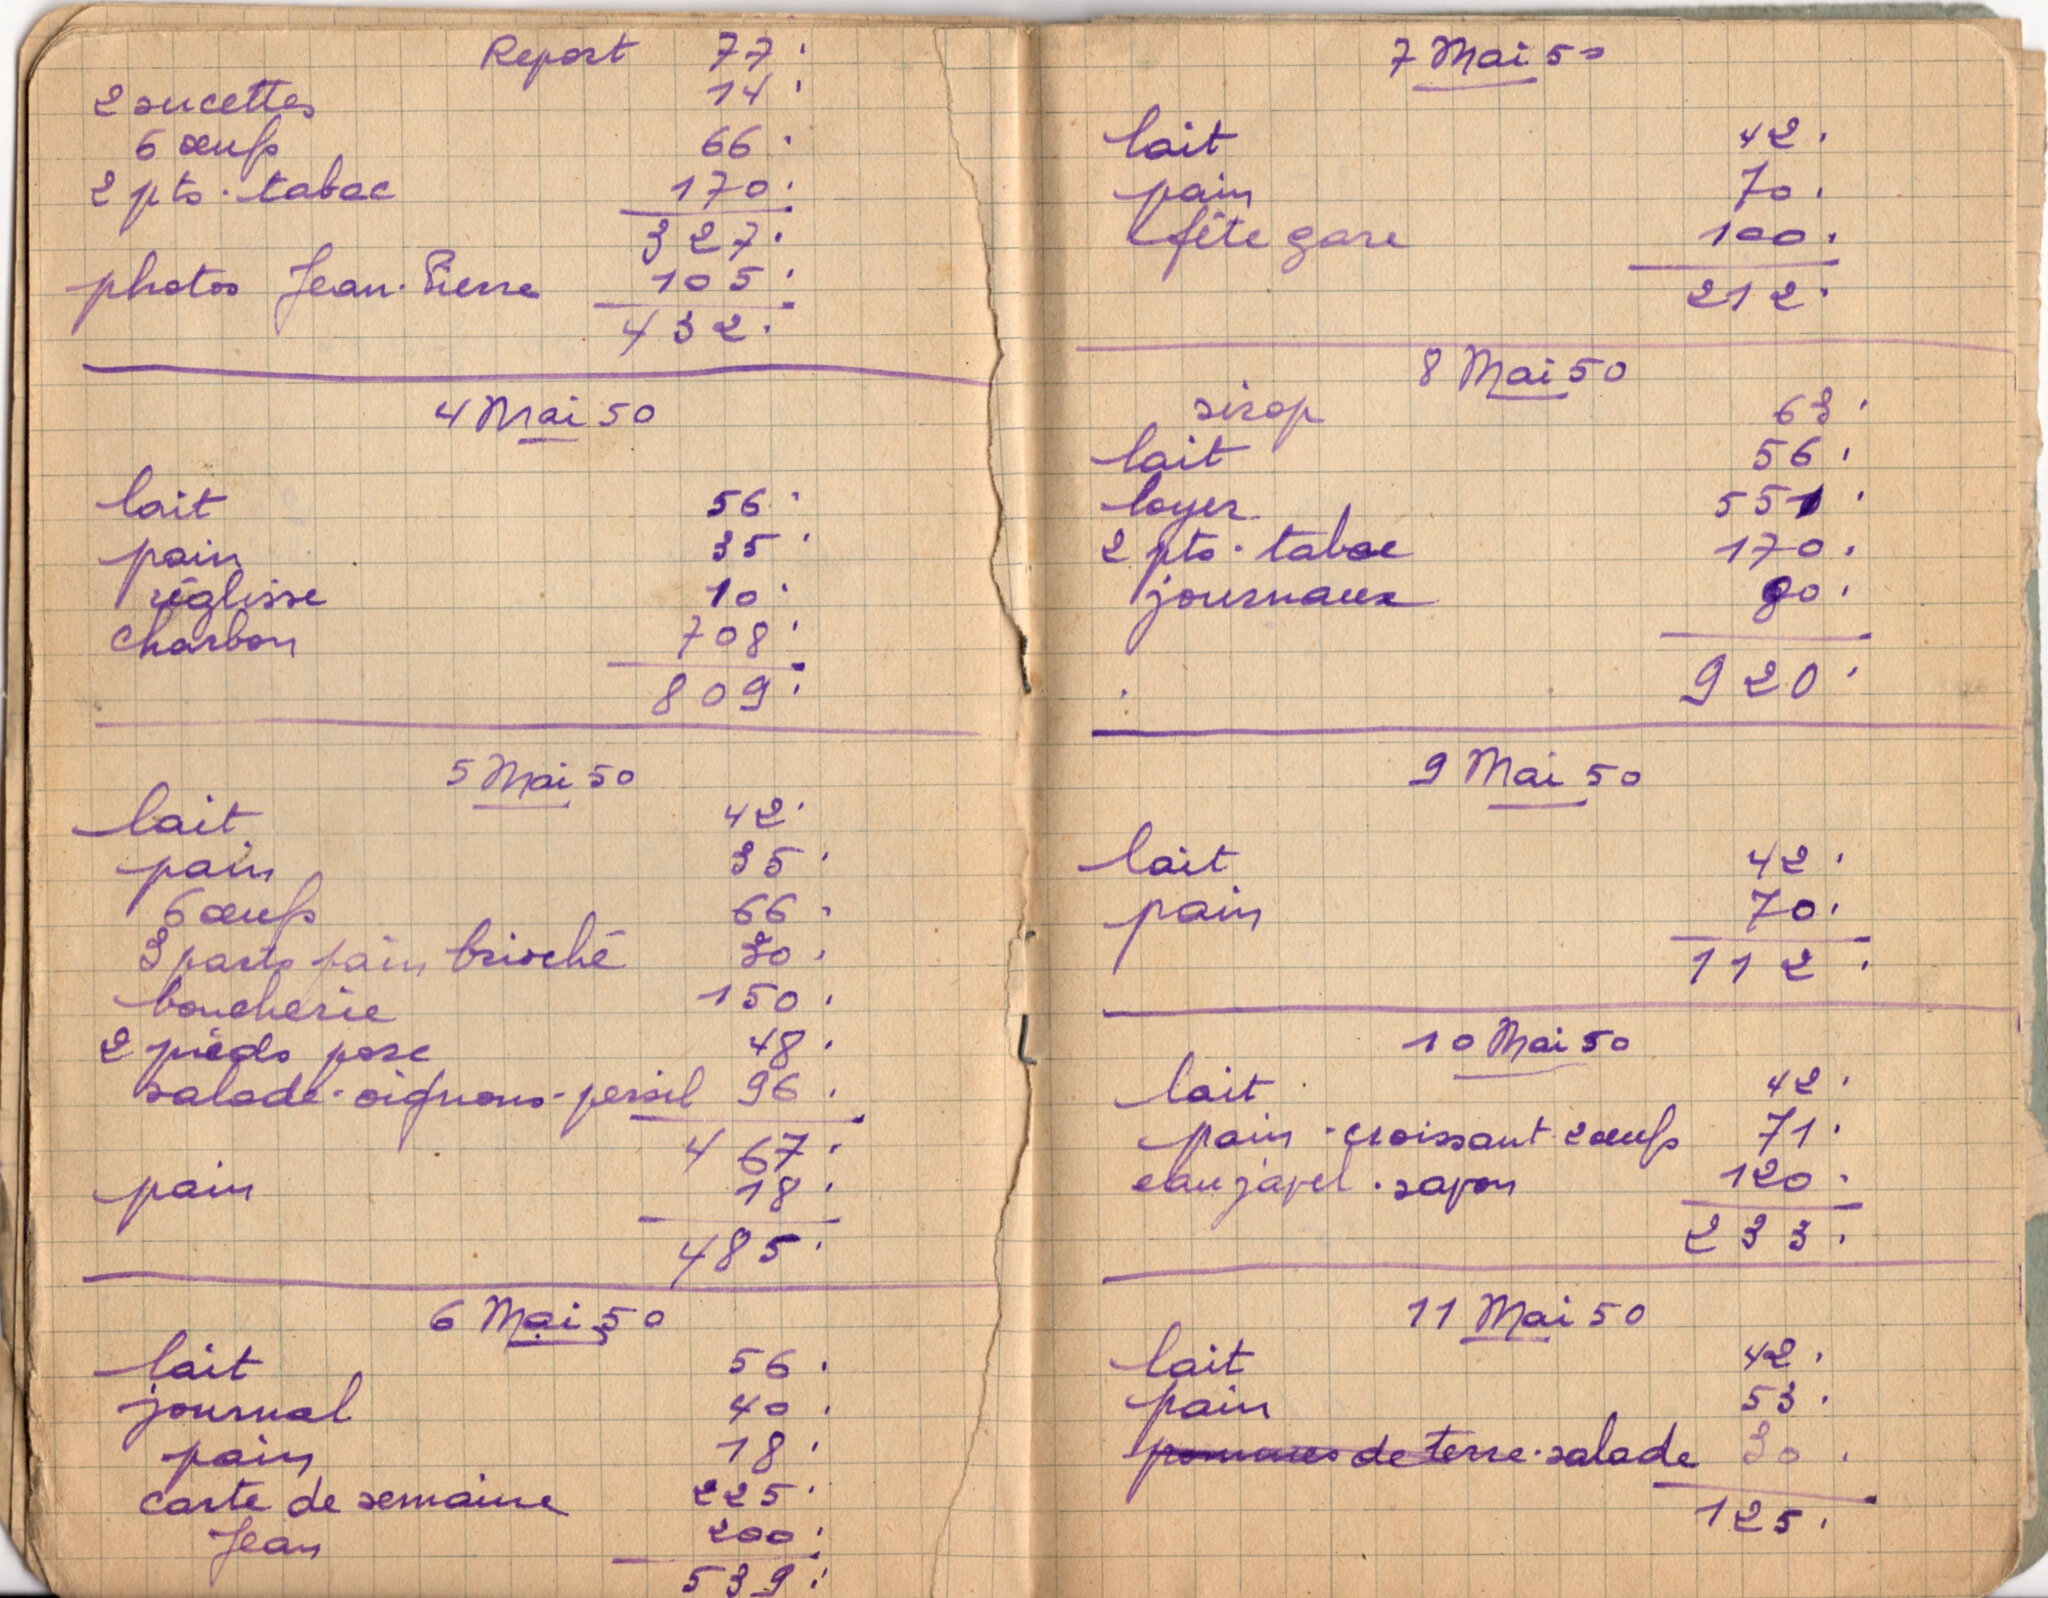 Report 77
2 sucettes 14
6 œufs 66
2 pts. tabac 170
327
photos Jean-Pierre 105
432
4 Mai 50
lait 56
pain 35
réglisse 10
charbon 708
809
5 Mai 50
lait 42
pain 35
6 œufs 66
3 parts pain brioché 30
boucherie 150
2 pieds porc 48
salade-oignons-persil 96
467
pain 18
485
6 Mai 50
lait 56
journal 40
pain 18
carte de semaine 225
Jean 200
539
7 Mai 50
lait 42
pain 70
fête gare 100
212
8 Mai 50
sirop 63
lait 56
loyer 551
2 pts. tabac 170
journaux 80
920
9 Mai 50
lait 42
pain 70
112
10 Mai 50
lait 42
pain-croissant 2 œufs 71
eau javel. savon 120
233
11 Mai 50
lait 42
pain 53
pommes de terre.salade 30
125